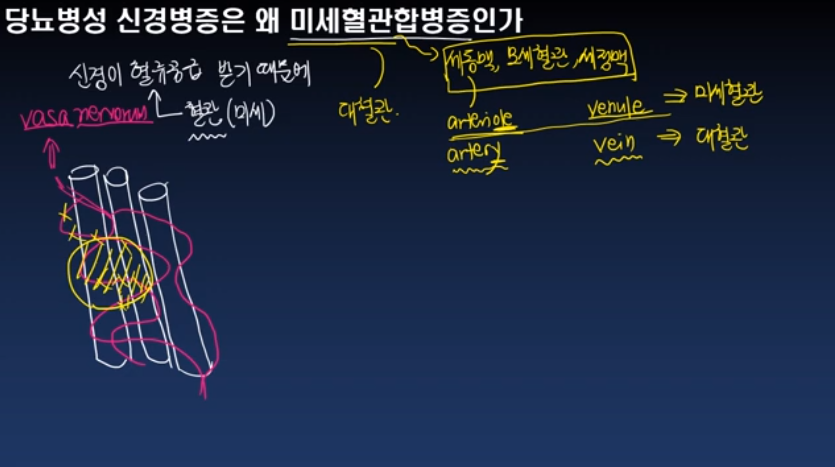 당뇨병성 신경병증은 왜 미세혈관합병증인가
신경이 혈류공급 받기 때문에
혈관 (미세)
vasa nervorum
대혈관.
세동맥, 모세혈관, 세정맥
arteriole venule ⇒ 미세혈관
artery vein ⇒ 대혈관